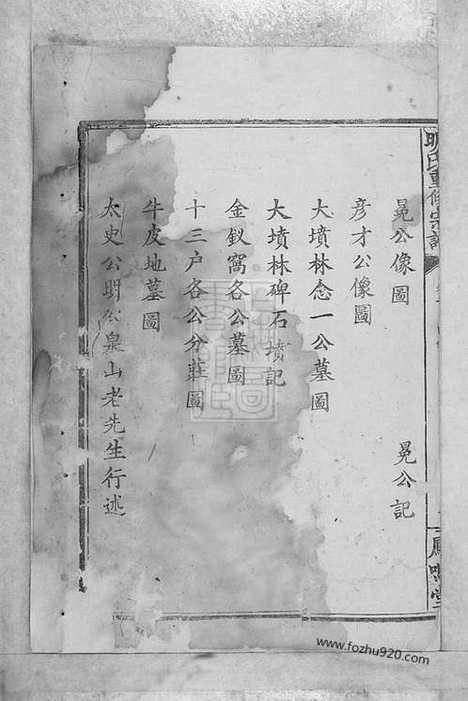 明氏重修宗譜
鳳鳴堂
晃公像圖
晃公記
彦才公像圖
大墳林念一公墓圖
大墳林碑石墳記
金釵窩各公墓圖
十三户各公分莊圖
牛皮地墓圖
太史公明公泉山老先生行述
www.fozhu920.com